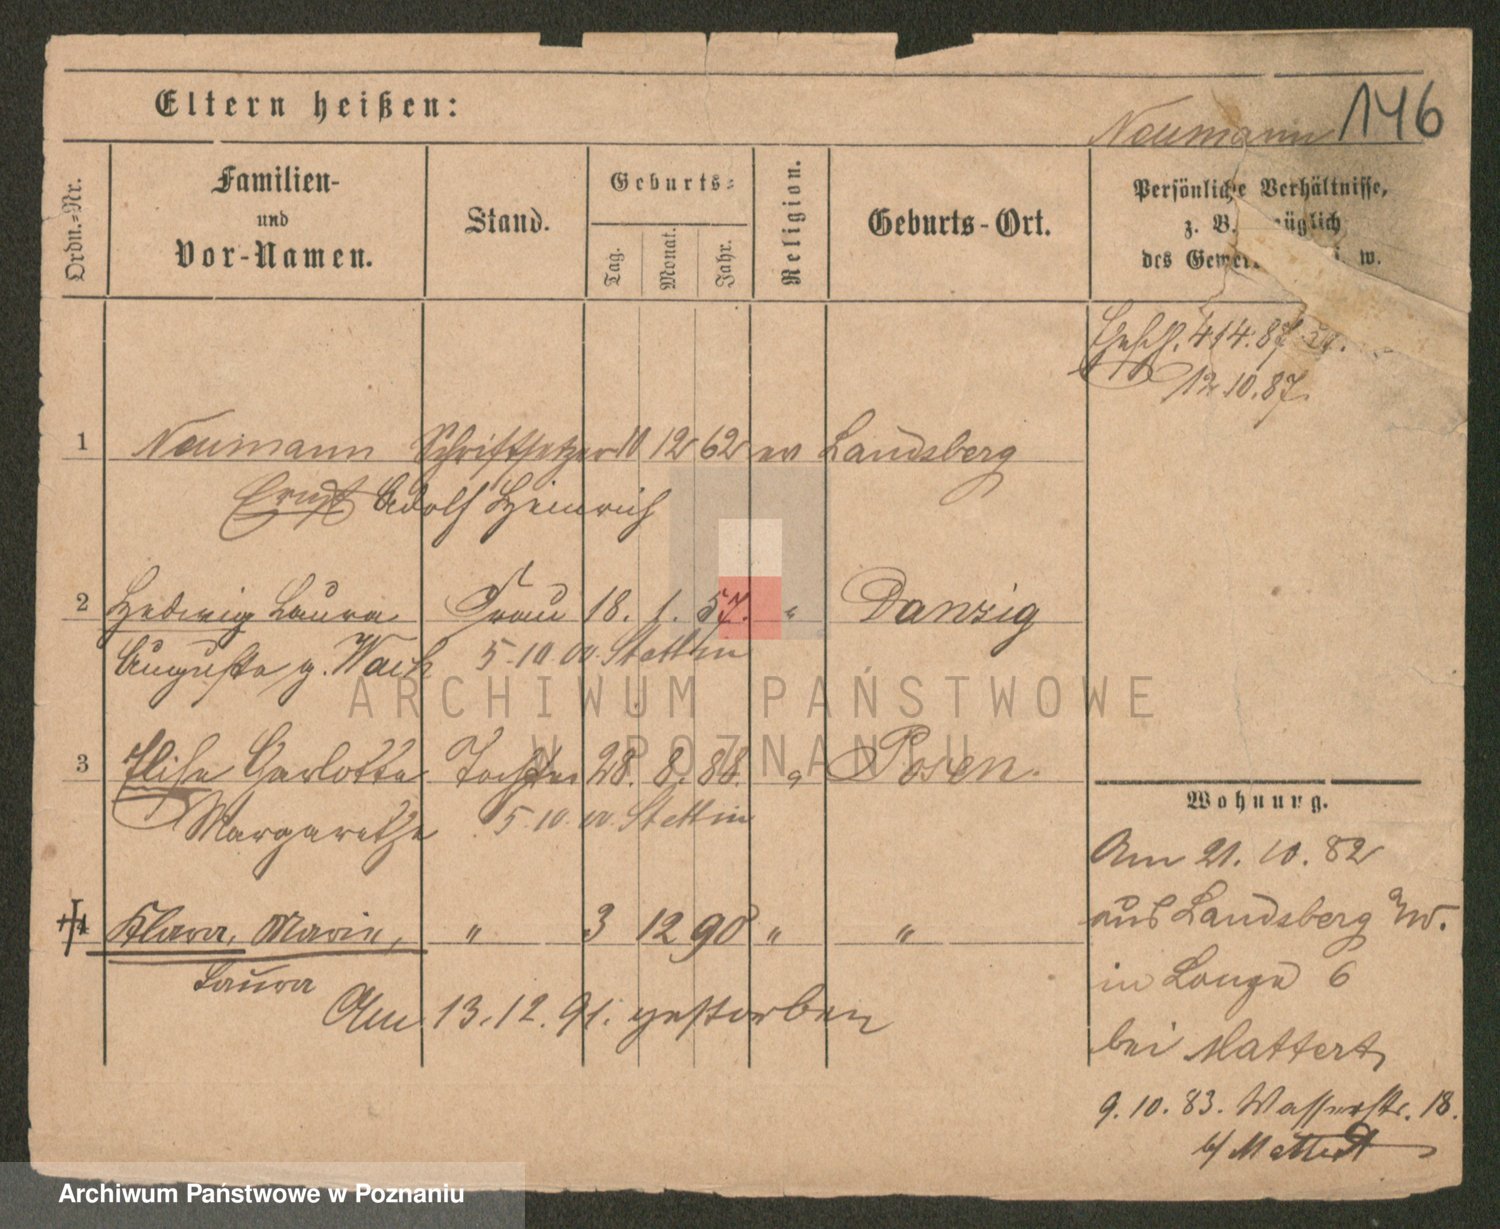 Eltern heißen:
Neumann 146
Ordn.-Nr.
Familien-
und
Vor-Namen.
Stand.
Geburts-
Tag.
Monat.
Jahr.
Religion.
Geburts-Ort.
Persönliche Verhältnisse,
z. B. züglich
des Gewer w.
414.87
12.10.87.
1 Neumann Schriftsetzer 10 12 62 ev Landsberg
Ernst Adolf Heinrich
2 Hedwig Laura Frau 18. 1. 57. " Danzig
Auguste g. Wack 5.10.00. Stettin
3 Elise Carlotte Tochter 28. 8. 88. " Posen.
Margarethe 5.10.00. Stettin
4 Klara, Marie, " 3 12 90 " "
Laura
Am 13.12.91. gestorben
Wohnung.
Am 21. 10. 82
aus Landsberg a/W.
in Lange 6
bei Mattert
9. 10. 83. Wasserstr. 18.
b/ Mattert
ARCHIWUM PAŃSTWOWE
W POZNANIU
Archiwum Państwowe w Poznaniu